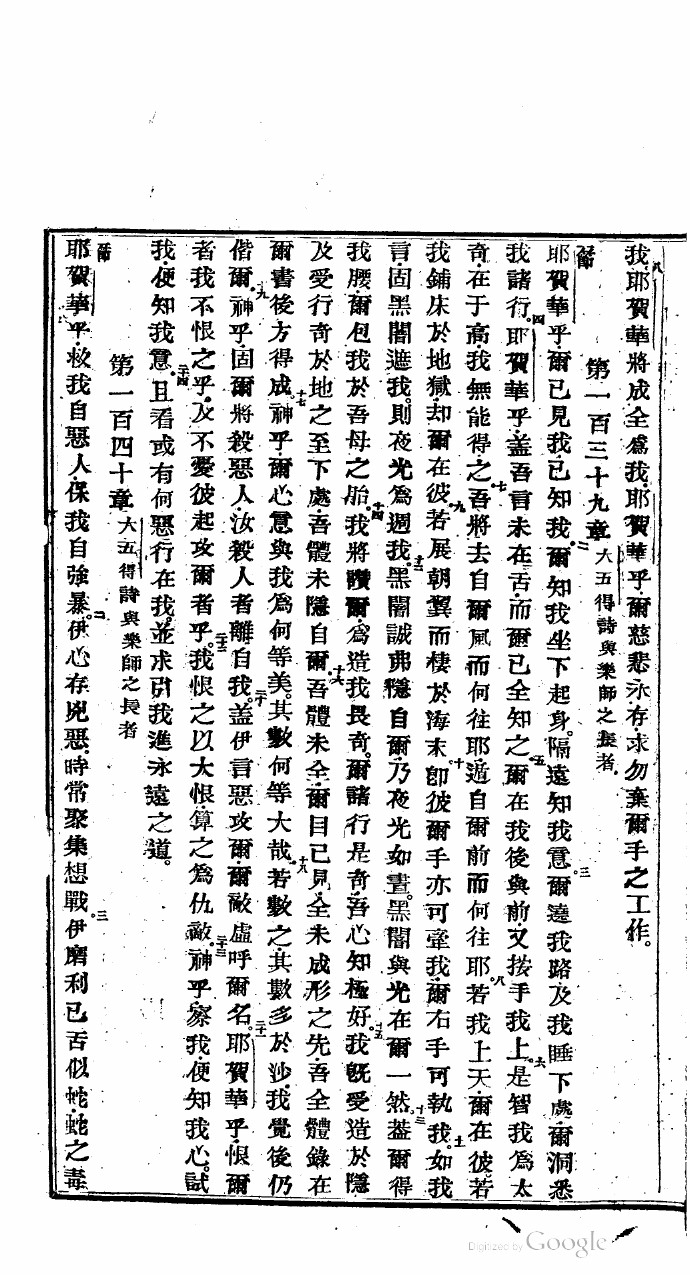 我耶賀華將成全爲我耶賀華乎爾慈悲永存求勿棄爾手之工作。
第一百三十九章 大五得詩與樂師之長者
耶賀華乎爾已見我已知我爾知我坐下起身隔遠知我意爾遶我路及我睡下處爾洞悉
我諸行耶賀華乎蓋吾言未在舌而爾已全知之爾在我後與前又按手我上是智我爲太
奇在于高我無能得之吾將去自爾風而何往耶遁自爾前而何往耶若我上天爾在彼若
我鋪床於地獄却爾在彼若展朝翼而棲於海末卽彼爾手亦可牽我爾右手可執我如我
言固黑闇遮我則夜光爲週我黑闇誠弗隱自爾乃夜光如晝黑闇與光在爾一然蓋爾得
我腰爾包我於吾母之胎我將讚爾爲造我畏奇爾諸行是奇吾心知極好我旣受造於隱
及受行奇於地之至下處吾體未隱自爾吾體未全爾目已見全未成形之先吾全體錄在
爾書後方得成神乎爾心意與我爲何等美其數何等大哉若數之其數多於沙我覺後仍
偕爾神乎固爾將殺惡人汝殺人者離自我蓋伊言惡攻爾爾敵虛呼爾名耶賀華乎恨爾
者我不恨之乎及不憂彼起攻爾者乎我恨之以大恨算之爲仇敵神乎察我便知我心試
我便知我意且看或有何惡行在我並求引我進永遠之道。
第一百四十章 大五得詩與樂師之長者
耶賀華乎救我自惡人保我自強暴伊心存兇惡時常聚集想戰伊磨利已舌似蛇蛇之毒
Digitized by Google